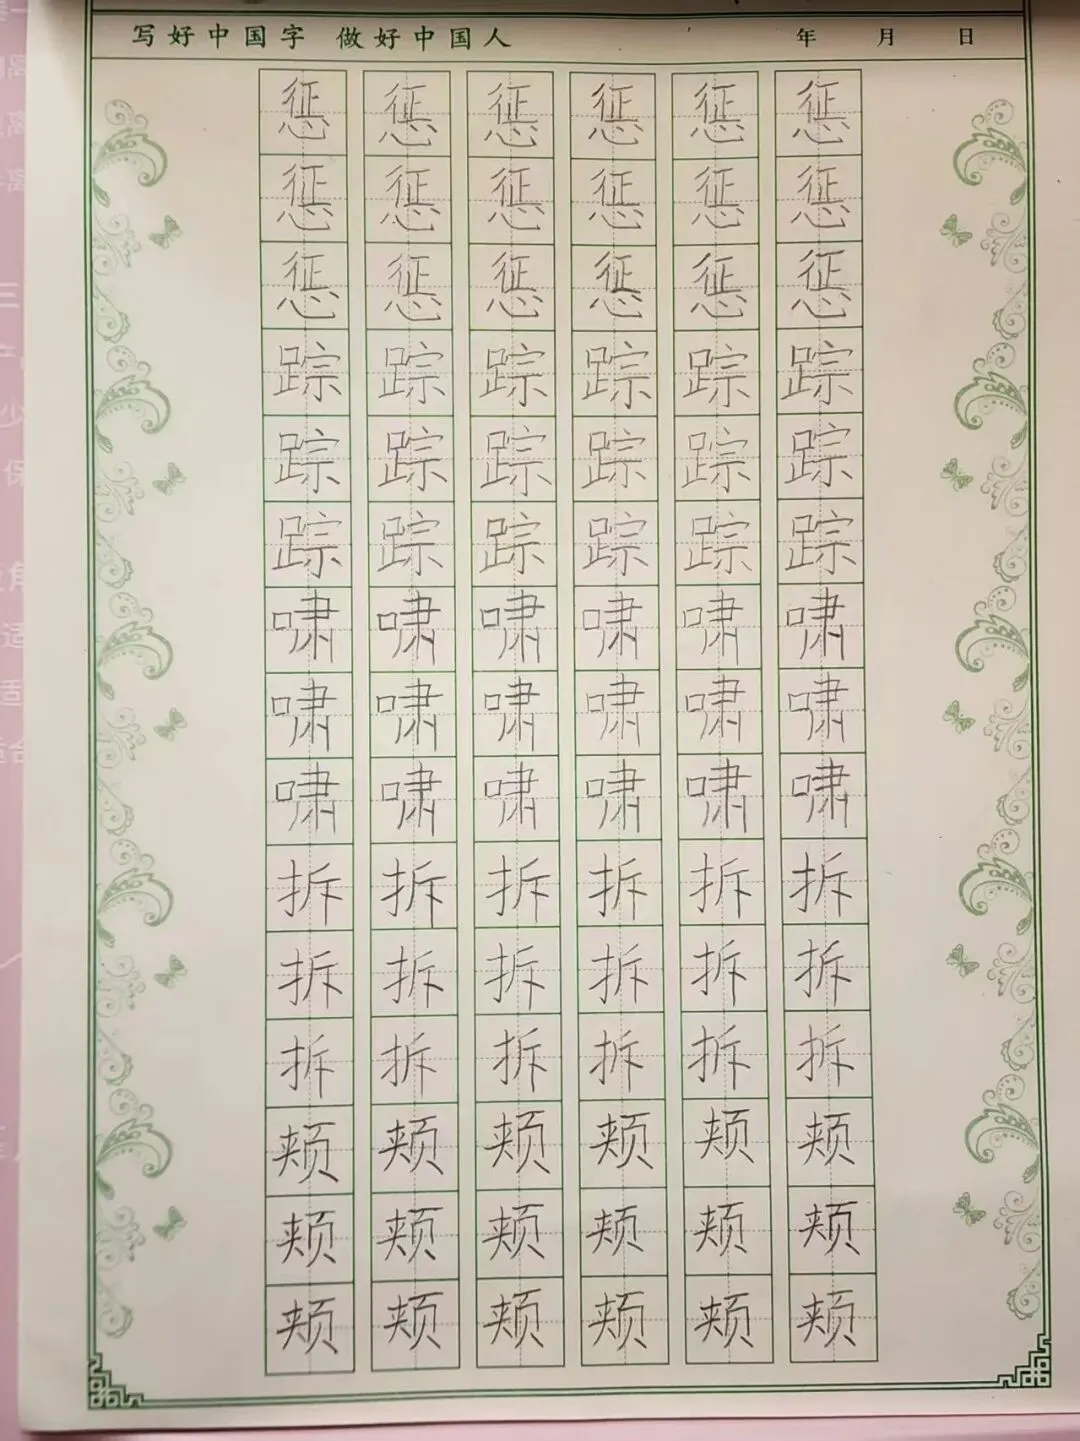 写好中国字 做好中国人 年 月 日
惩惩惩惩惩惩
惩惩惩惩惩惩
惩惩惩惩惩惩
踪踪踪踪踪踪
踪踪踪踪踪踪
踪踪踪踪踪踪
啸啸啸啸啸啸
啸啸啸啸啸啸
啸啸啸啸啸啸
拆拆拆拆拆拆
拆拆拆拆拆拆
拆拆拆拆拆拆
颊颊颊颊颊颊
颊颊颊颊颊颊
颊颊颊颊颊颊